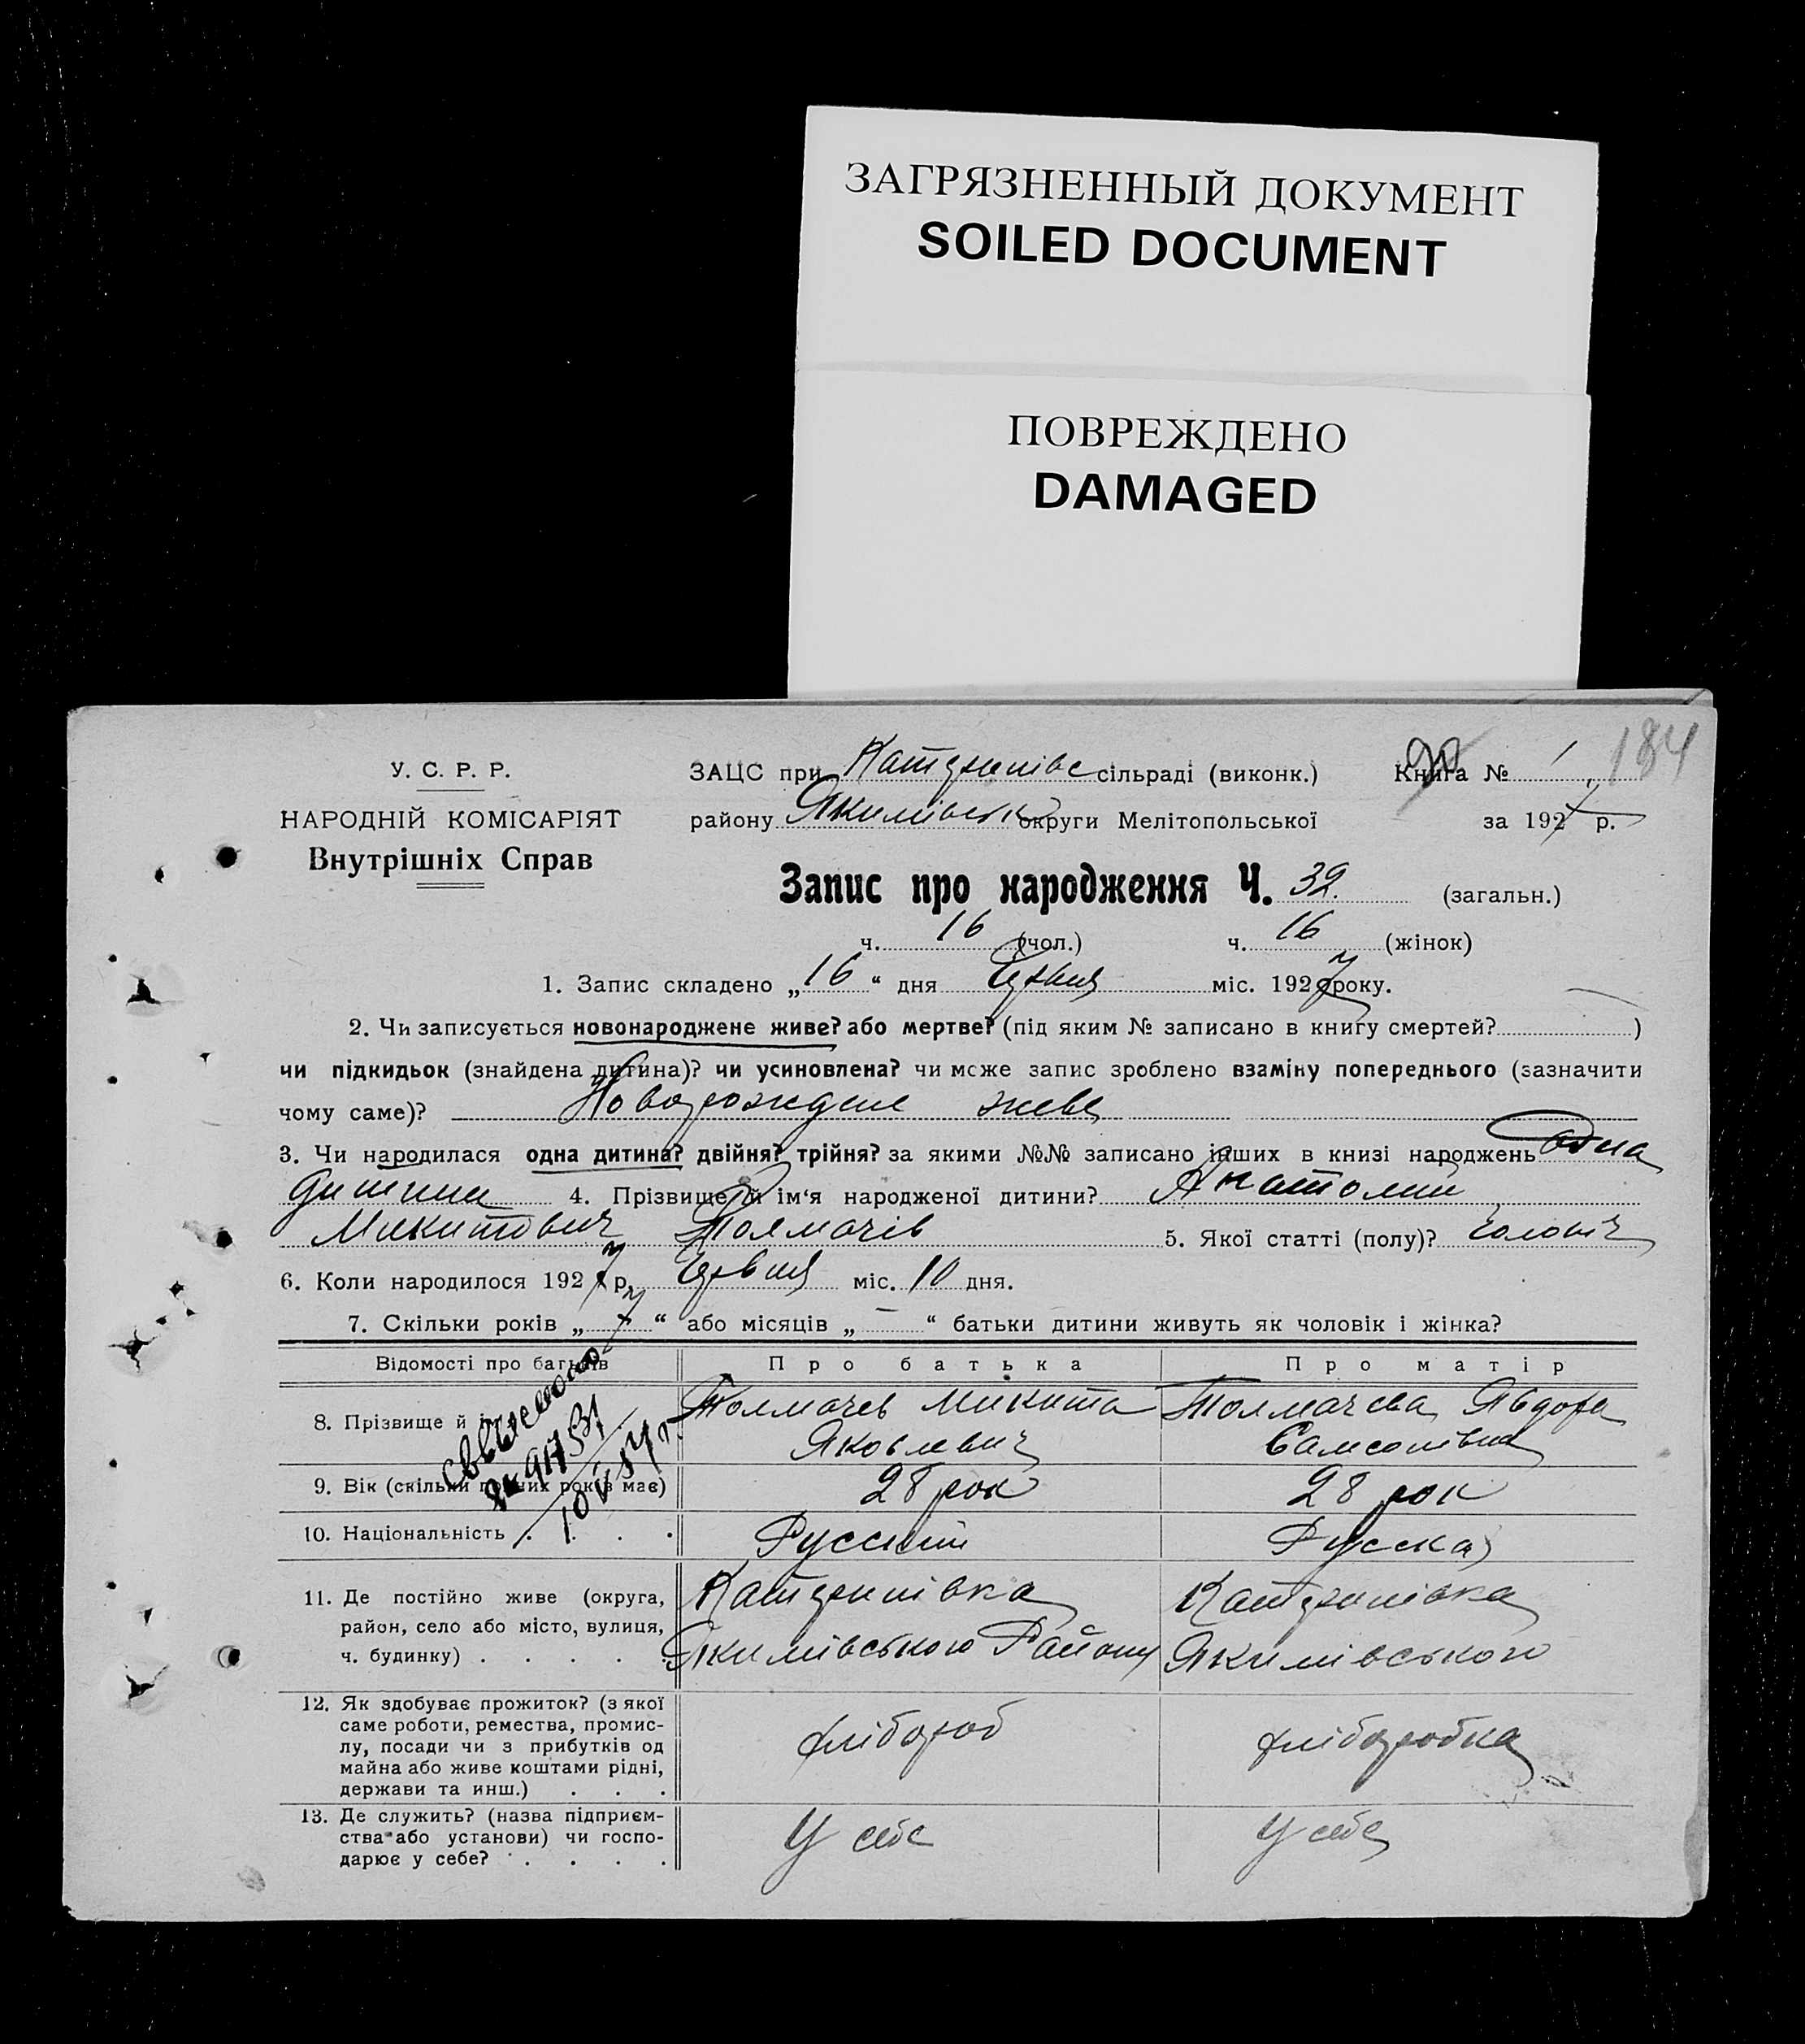 ЗАГРЯЗНЕННЫЙ ДОКУМЕНТ
SOILED DOCUMENT
ПОВРЕЖДЕНО
DAMAGED
184
У. С. Р. Р.
НАРОДНІЙ КОМІСАРІЯТ
Внутрішніх Справ
ЗАЦС при Катеринівс сільраді (виконк.) Книга № 1
району Якимівськ округи Мелітопольської за 1927 р.
Запис про народження Ч. 32. (загальн.)
ч. 16 (чол.) ч. 16 (жінок)
1. Запис складено „16“ дня Червня міс. 1927 року.
2. Чи записується новонароджене живе? або мертве? (під яким № записано в книгу смертей? )
чи підкидьок (знайдена дитина)? чи усиновлена? чи може запис зроблено взаміну попереднього (зазначити
чому саме)? Новорождене живе
3. Чи народилася одна дитина? двійня? трійня? за якими №№ записано інших в книзі народжень одна
дитина 4. Прізвище й ім‘я народженої дитини? Анатолий
Микитович Толмачів 5. Якої статті (полу)? чоловіч
6. Коли народилося 1927 р. Червня міс. 10 дня.
7. Скільки років „7“ або місяців „–“ батьки дитини живуть як чоловік і жінка?
Відомості про батьків Про батька Про матір
8. Прізвище й Толмачев Микита Толмачева Явдоха
Яковлевич Самсонівна
9. Вік (скільки повних років має) 28 рок 28 рок
10. Національність Русский Руская
11. Де постійно живе (округа, Катеринівка Катеринівка
район, село або місто, вулиця,
ч. будинку) Якимівського Району Якимівського
12. Як здобуває прожиток? (з якої
саме роботи, ремества, промис-
лу, посади чи з прибутків од хлібороб хліборобка
майна або живе коштами рідні,
держави та инш.)
13. Де служить? (назва підприєм-
ства або установи) чи госпо- У себе У себе
дарює у себе?